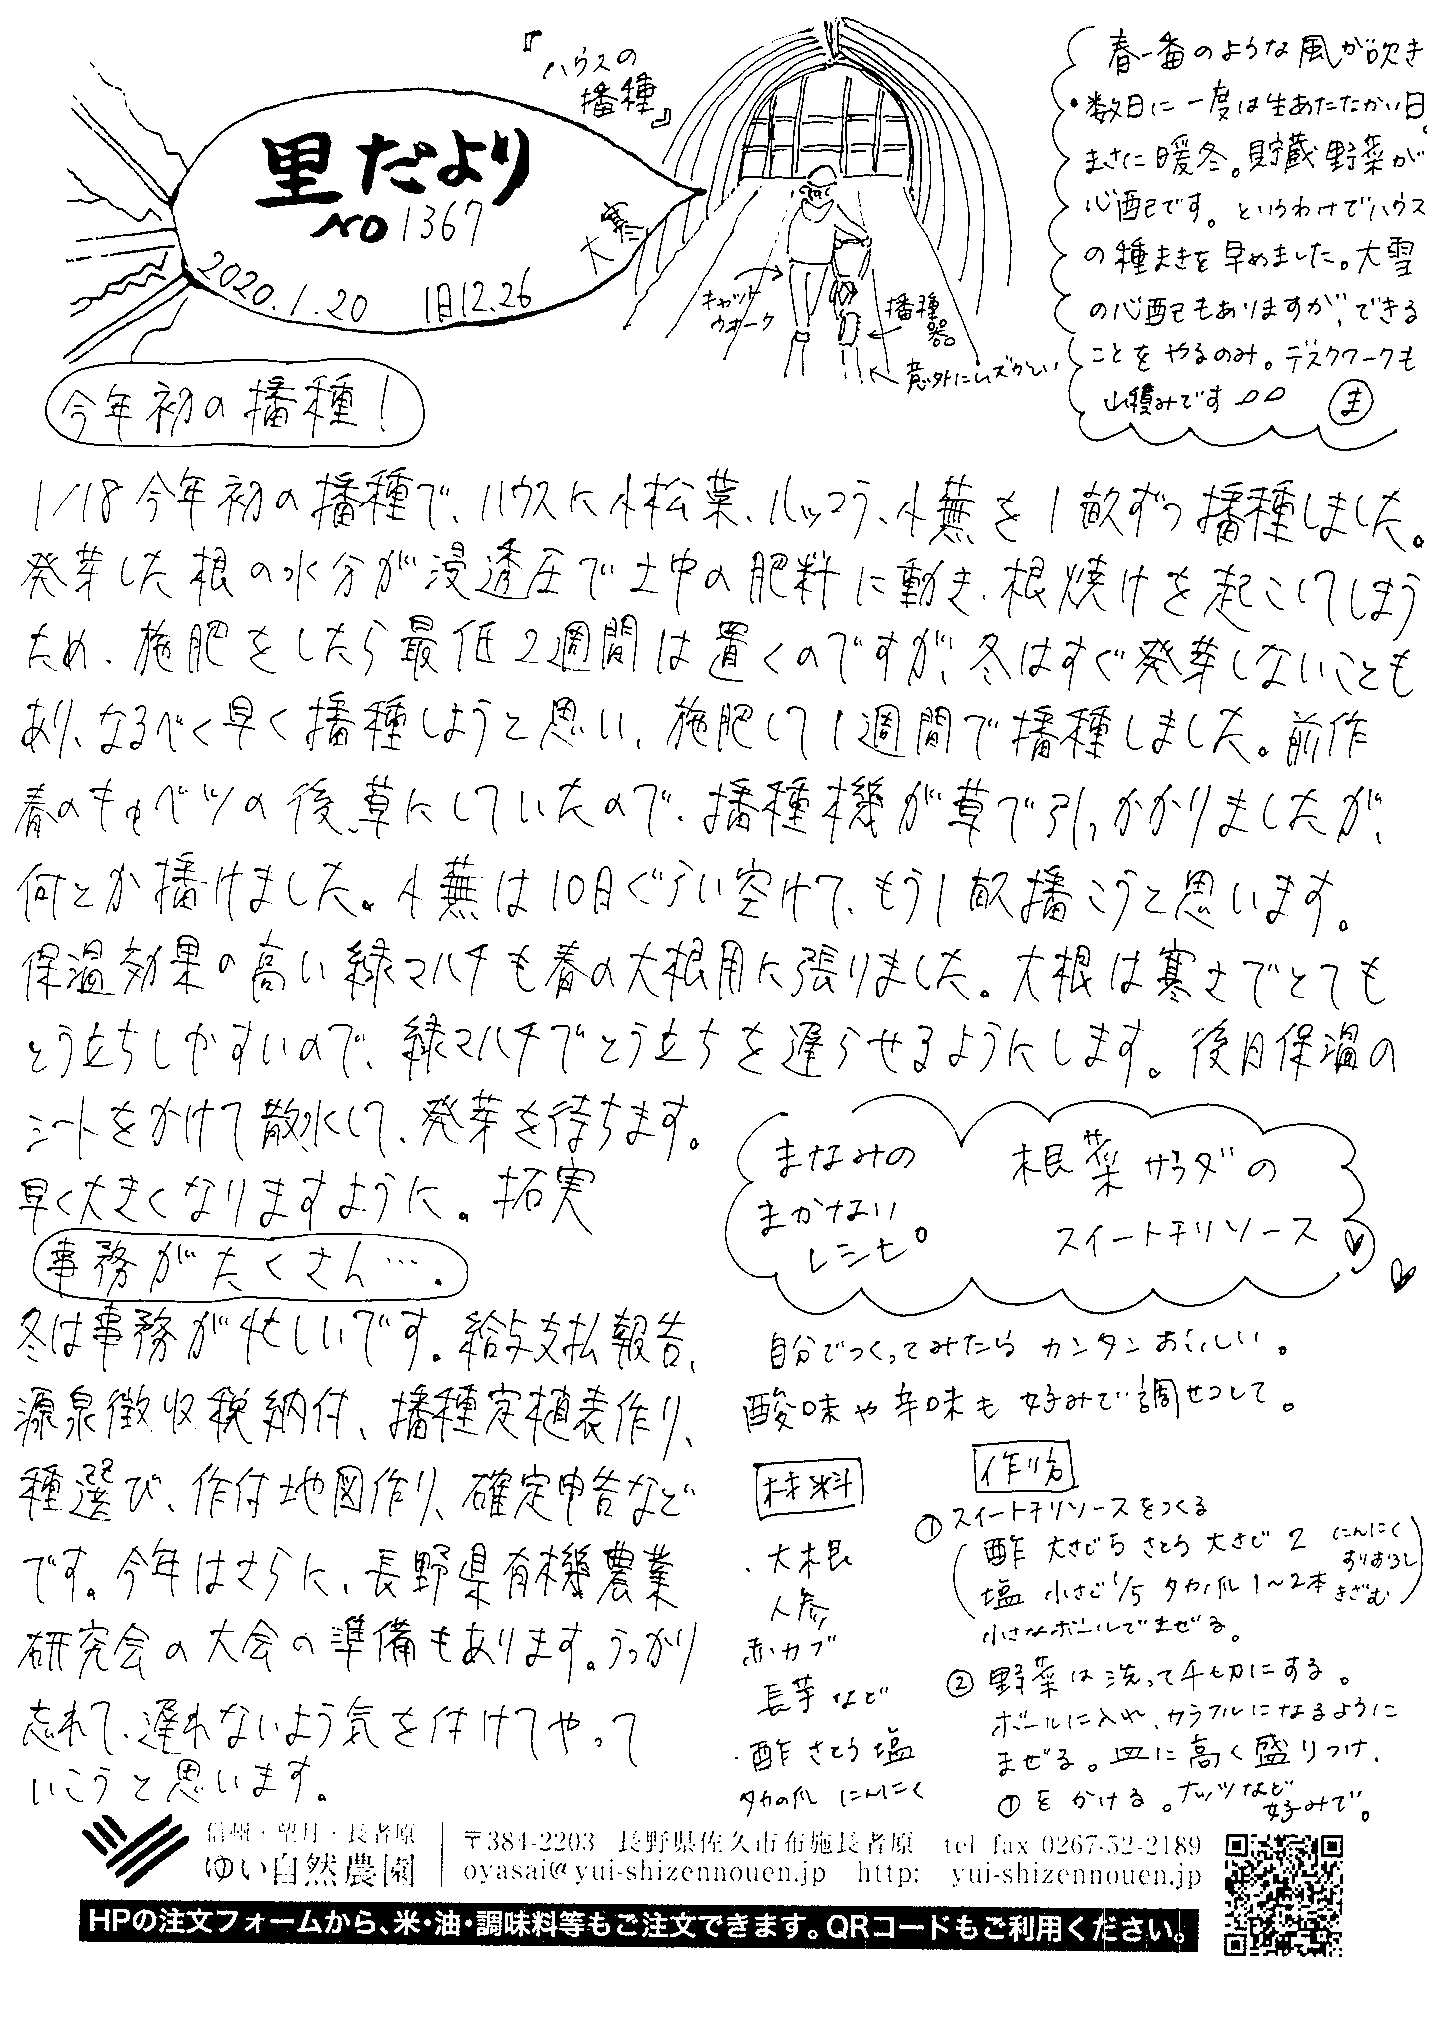 『ハウスの
播種』
里だより
NO 1367
大寒
2020.1.20 旧12.26
キャット
ウオーク
播種
器。
意外にムズかしい
春一番のような風が吹き
・数日に一度は生あたたかい日。
まさに暖冬。貯蔵野菜が
心配です。というわけでハウス
の種まきを早めました。大雪
の心配もありますが、できる
ことをやるのみ。デスクワークも
山積みです
ま
今年初の播種!
1/18 今年初の播種で、ハウスに小松菜、ルッコラ、小蕪を1畝ずつ播種しました。
発芽した根の水分が浸透圧で土中の肥料に動き、根焼けを起こしてしまう
ため、施肥をしたら最低2週間は置くのですが、冬はすぐ発芽しないことも
あり、なるべく早く播種しようと思い、施肥して1週間で播種しました。前作
春のキャベツの後、草にしていたので、播種機が草で引っかかりましたが、
何とか播けました。小蕪は10日ぐらい空けて、もう1畝播こうと思います。
保温効果の高い緑マルチも春の大根用に張りました。大根は寒さでとても
とう立ちしやすいので、緑マルチでとう立ちを遅らせるようにします。後日保温の
シートをかけて散水して、発芽を待ちます。
早く大きくなりますように。 拓実
事務がたくさん….
冬は事務が忙しいです。給与支払報告、
源泉徴収税納付、播種定植表作り、
種選び、作付地図作り、確定申告など
です。今年はさらに、長野県有機農業
研究会の大会の準備もあります。うっかり
忘れて、遅れないよう気を付けてやって
いこうと思います。
まなみの
まかない
レシピ。
根菜サラダの
スイートチリソース
自分でつくってみたら カンタン おいしい。
酸味や辛味も 好みで調せつして。
材料
・大根
人参
赤カブ
長芋など
・酢 さとう 塩
タカの爪 にんにく
作り方
① スイートチリソースをつくる
酢 大さじ5 さとう 大さじ2 にんにく
すりおろし
塩 小さじ1/5 タカノ爪 1～2本 きざむ
小さなボールでまぜる。
② 野菜は洗って千切にする。
ボールに入れ、カラフルになるように
まぜる。皿に高く盛りつけ、
①をかける。ナッツなど
好みで。
信州・望月・長者原
ゆい自然農園
〒384-2203 長野県佐久市布施長者原 tel fax 0267-52-2189
oyasai@yui-shizennouen.jp http: yui-shizennouen.jp
HPの注文フォームから、米・油・調味料等もご注文できます。QRコードもご利用ください。